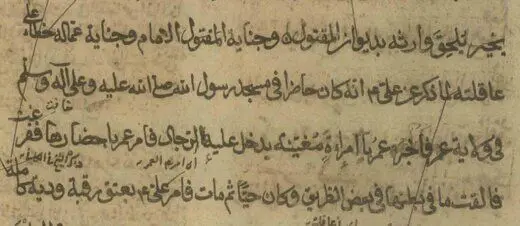 بخير تلحق وارثه بديوان المقتول وجناية المقتول الامام وجناية عماله خطاء على
عاقلته لما ذكر عن على م انه كان حاضرا في مسجد رسول الله صلى الله عليه وعلى آله وسلم
في ولاية عمر فاخبره عمر بامراة مغنيته يدخل عليها الرجال فامر عمر باحضارها
فالقت ما في بطنها في بعض الطريق وكان حيا ثم مات فامر على م بعتق رقبة ودية كاملة